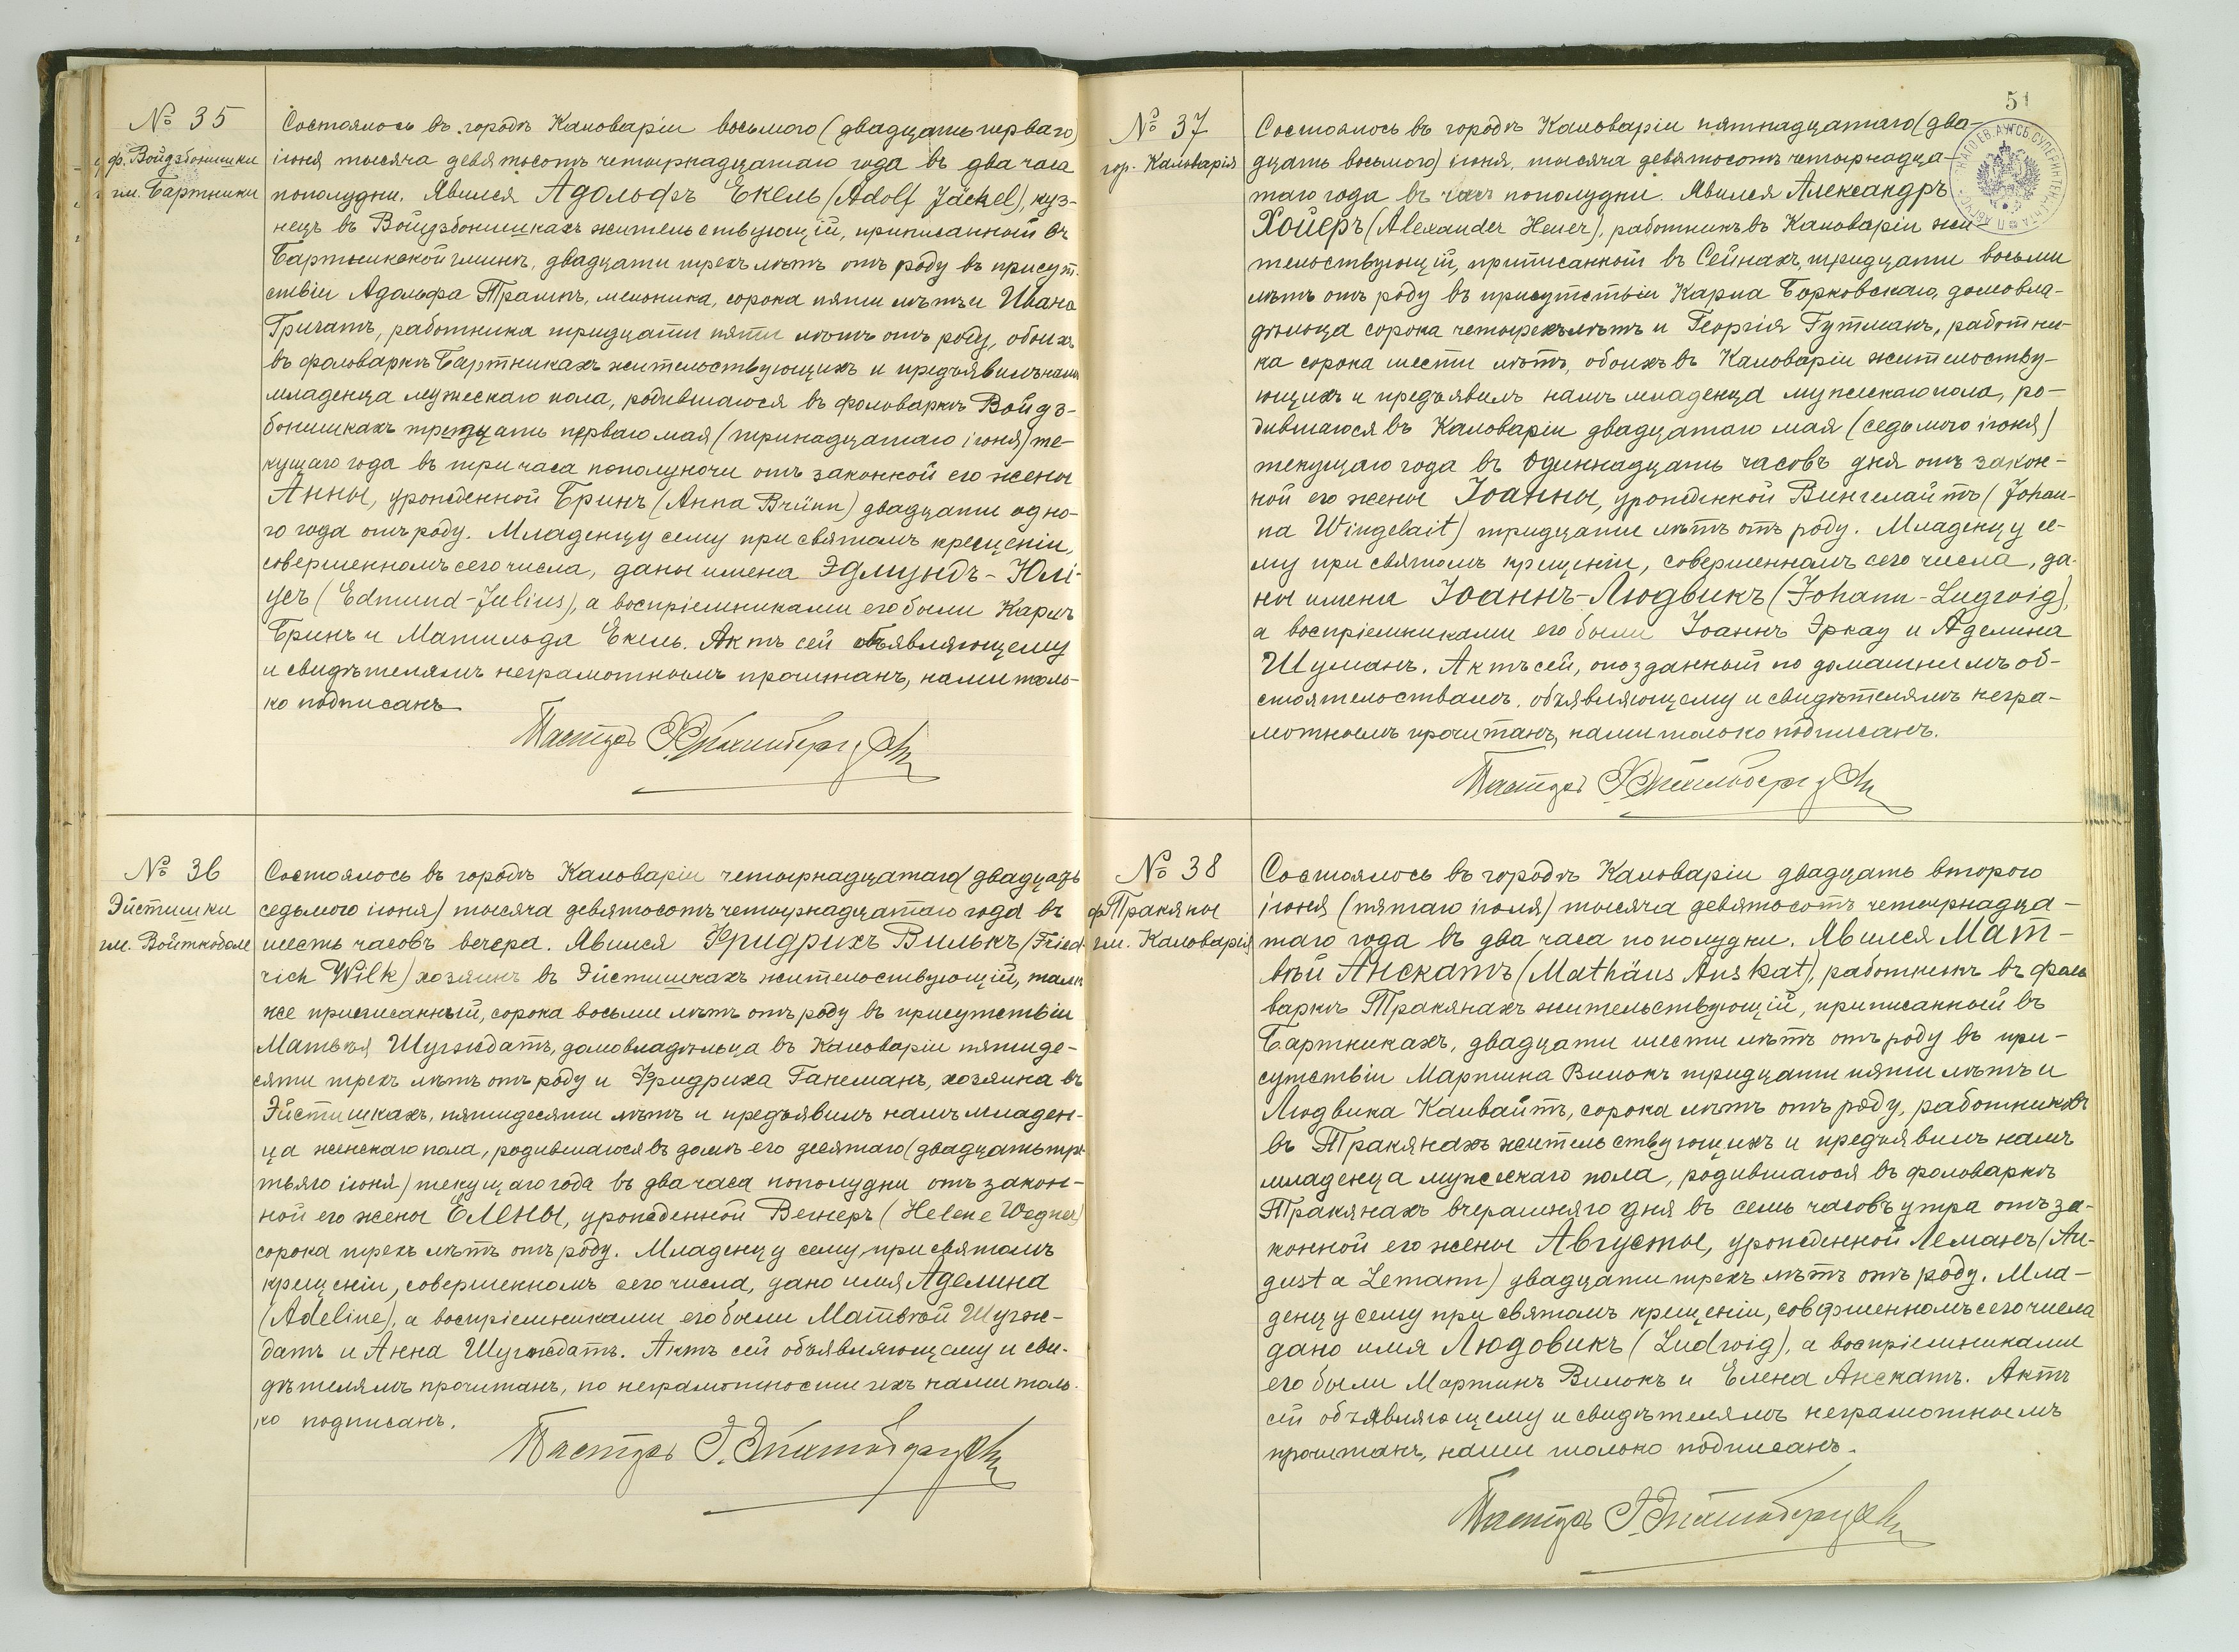 № 35
ф. Войдзбонишки
гм. Бартники
Состоялось въ городѣ Кальваріи восьмого (двадцать перваго)
іюня тысяча девятьсотъ четырнадцатаго года въ два часа
пополудни. Явился Адольфъ Екель (Adolf Jäckel), куз-
нецъ въ Войдзбонишкахъ жительствующій, приписанный въ
Бартникской гминѣ, двадцати трехъ лѣтъ отъ роду въ присут-
ствіи Адольфа Трампъ, мельника, сорока пяти лѣтъ и Ивана
Григатъ, работника тридцати пяти лѣтъ отъ роду, обоихъ
въ фольваркѣ Бартникахъ жительствующихъ и предъявилъ намъ
младенца мужескаго пола, родившагося въ фольваркѣ Войдз-
бонишкахъ тридцать перваго мая (тринадцатаго іюня) те-
кущаго года въ три часа пополуночи отъ законной его жены
Анны, урожденной Бринъ (Anna Brünn) двадцати одно-
го года отъ роду. Младенцу сему при святомъ крещеніи,
совершенномъ сего числа, даны имена Эдмундъ-Юлі-
усъ (Edmund-Julius), а воспріемниками его были Карлъ
Бринъ и Матильда Екель. Актъ сей объявляющему
и свидѣтелямъ неграмотнымъ прочитанъ, нами толь-
ко подписанъ
Пасторъ
№ 36
Эйстишки
гм. Войткоболе
Состоялось въ городѣ Кальваріи четырнадцатаго (двадцать
седьмого іюня) тысяча девятьсотъ четырнадцатаго года въ
шесть часовъ вечера. Явился Фридрихъ Вилькъ (Fried-
rich Wilk) хозяинъ въ Эйстишкахъ жительствующій, тамъ
же приписанный, сорока восьми лѣтъ отъ роду въ присутствіи
Матвѣя Шугждатъ, домовладѣльца въ Кальваріи пятиде-
сяти трехъ лѣтъ отъ роду и Фридриха Ганеманъ, хозяина въ
Эйстишкахъ, пятидесяти лѣтъ и предъявилъ намъ младен-
ца женскаго пола, родившагося въ домѣ его десятаго (двадцать тре-
тьяго іюня) текущаго года въ два часа пополудни отъ закон-
ной его жены Елены, урожденной Вегнеръ (Helene Wegner)
сорока трехъ лѣтъ отъ роду. Младенцу сему, при святомъ
крещеніи, совершенномъ сего числа, дано имя Аделина
(Adeline), а воспріемниками его были Матвѣй Шугж-
датъ и Анна Шугждатъ. Актъ сей объявляющему и сви-
дѣтелямъ прочитанъ, по неграмотности ихъ нами толь-
ко подписанъ.
Пасторъ
51
№ 37
гор. Кальварія
Состоялось въ городѣ Кальваріи пятнадцатаго (два-
дцать восьмого) іюня, тысяча девятьсотъ четырнадца-
таго года въ часъ пополудни. Явился Александръ
Хойеръ (Alexander Heuer), работникъ въ Кальваріи жи-
тельствующій, приписанный въ Сейнахъ, тридцати восьми
лѣтъ отъ роду въ присутствіи Карла Борковскаго, домовла-
дѣльца сорока четырехъ лѣтъ и Георгія Гутманъ, работни-
ка сорока шести лѣтъ, обоихъ въ Кальваріи жительству-
ющихъ и предъявилъ намъ младенца мужескаго пола, ро-
дившагося въ Кальваріи двадцатаго мая (седьмого іюня)
текущаго года въ одиннадцать часовъ дня отъ закон-
ной его жены Іоанны, урожденной Вингелайтъ (Johan-
na Wingelait) тридцати лѣтъ отъ роду. Младенцу се-
му при святомъ крещеніи, совершенномъ сего числа, да-
ны имена Іоаннъ-Людвикъ (Johann-Ludwig),
а воспріемниками его были Іоаннъ Эркау и Аделина
Шуманъ. Актъ сей, опозданный по домашнимъ об-
стоятельствамъ, объявляющему и свидѣтелямъ негра-
мотнымъ прочитанъ, нами только подписанъ.
Пасторъ
№ 38
ф Тракяны
гм. Кальварія
Состоялось въ городѣ Кальваріи двадцать второго
іюня (пятаго іюля) тысяча девятьсотъ четырнадца-
таго года въ два часа пополудни. Явился Мат-
вѣй Анскатъ (Mathäus Anskat), работникъ въ фоль
варкѣ Тракянахъ жительствующій, приписанный въ
Бартникахъ, двадцати шести лѣтъ отъ роду въ при-
сутствіи Мартина Вилокъ тридцати пяти лѣтъ и
Людвика Калвайтъ, сорока лѣтъ отъ роду, работниковъ
въ Тракянахъ жительствующихъ и предъявилъ намъ
младенца мужескаго пола, родившагося въ фольваркѣ
Тракянахъ вчерашняго дня въ семь часовъ утра отъ за-
конной его жены Августы, урожденной Леманъ (Au-
gusta Lemann) двадцати трехъ лѣтъ отъ роду. Мла-
денцу сему при святомъ крещеніи, совершенномъ сего числа
дано имя Людовикъ (Ludwig), а воспріемниками
его были Мартинъ Вилокъ и Елена Анскатъ. Актъ
сей объявляющему и свидѣтелямъ неграмотнымъ
прочитанъ, нами только подписанъ.
Пасторъ